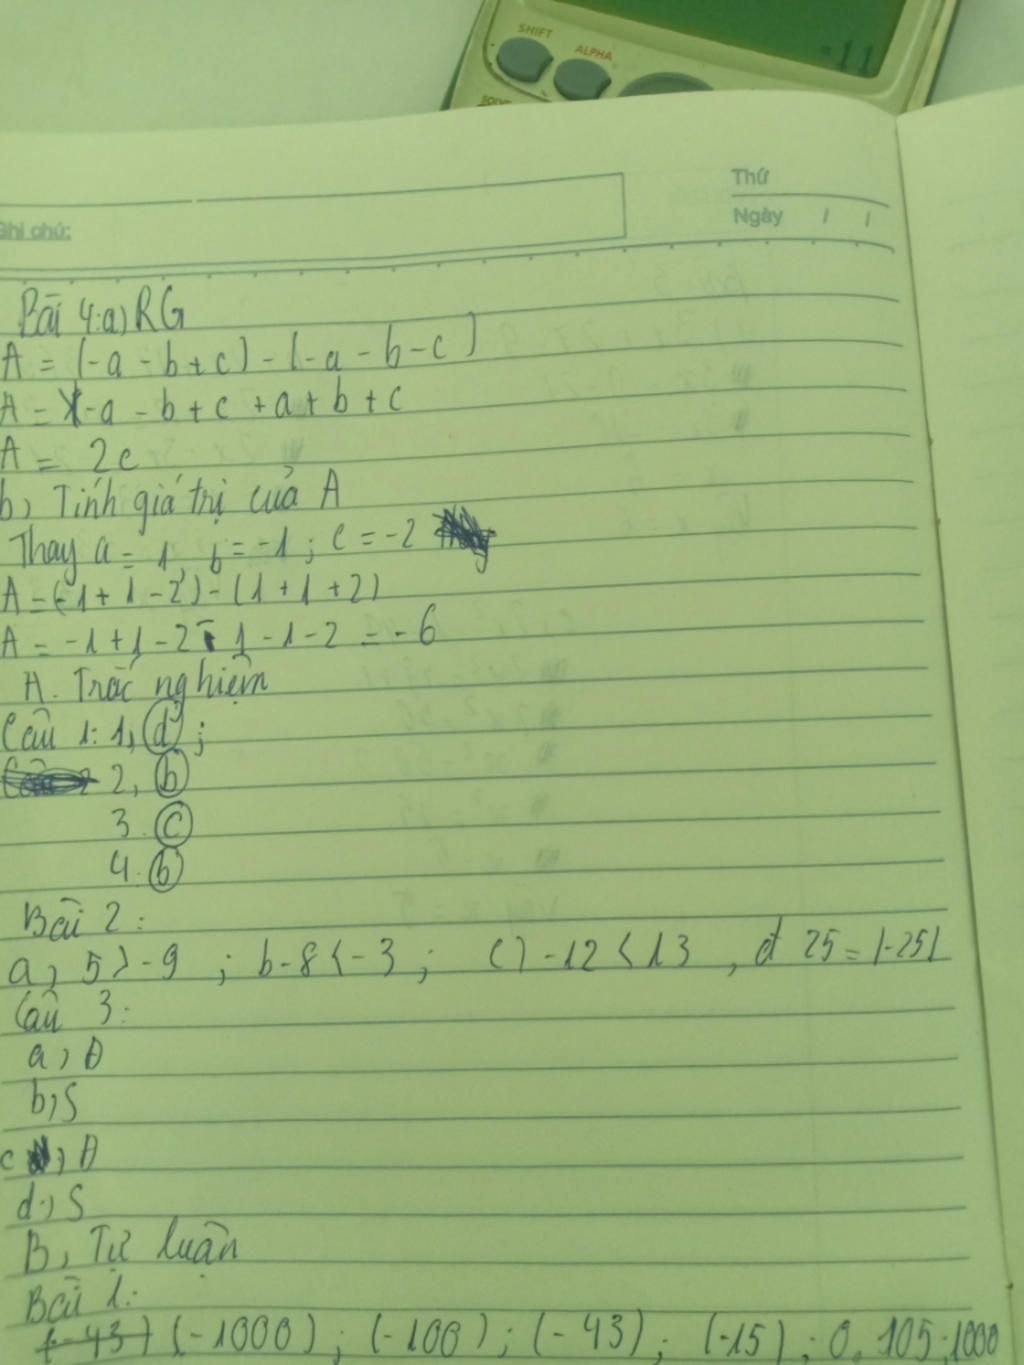 SHIFT
ALPHA
SOLVE
=11
Thứ
Ngày / /
Ghi chú:
Bài 4:a) RG
A = (-a - b + c) - (-a - b - c)
A = -a - b + c + a + b + c
A = 2c
b, Tính giá trị của A
Thay a = 1, b = -1; c = -2
A = (-1 + 1 - 2) - (1 + 1 + 2)
A = -1 + 1 - 2 - 1 - 1 - 2 = -6
A. Trắc nghiệm
Câu 1: 1, d ;
2, b
3. c
4. b
Bài 2:
a, 5 > -9 ; b -8 < -3 ; c) -12 < 13 , d 25 = |-25|
Câu 3:
a, Đ
b, S
c , Đ
d, S
B, Tự luận
Bài 1:
(-43) (-1000); (-100); (-43); (-15); 0, 105; 1000